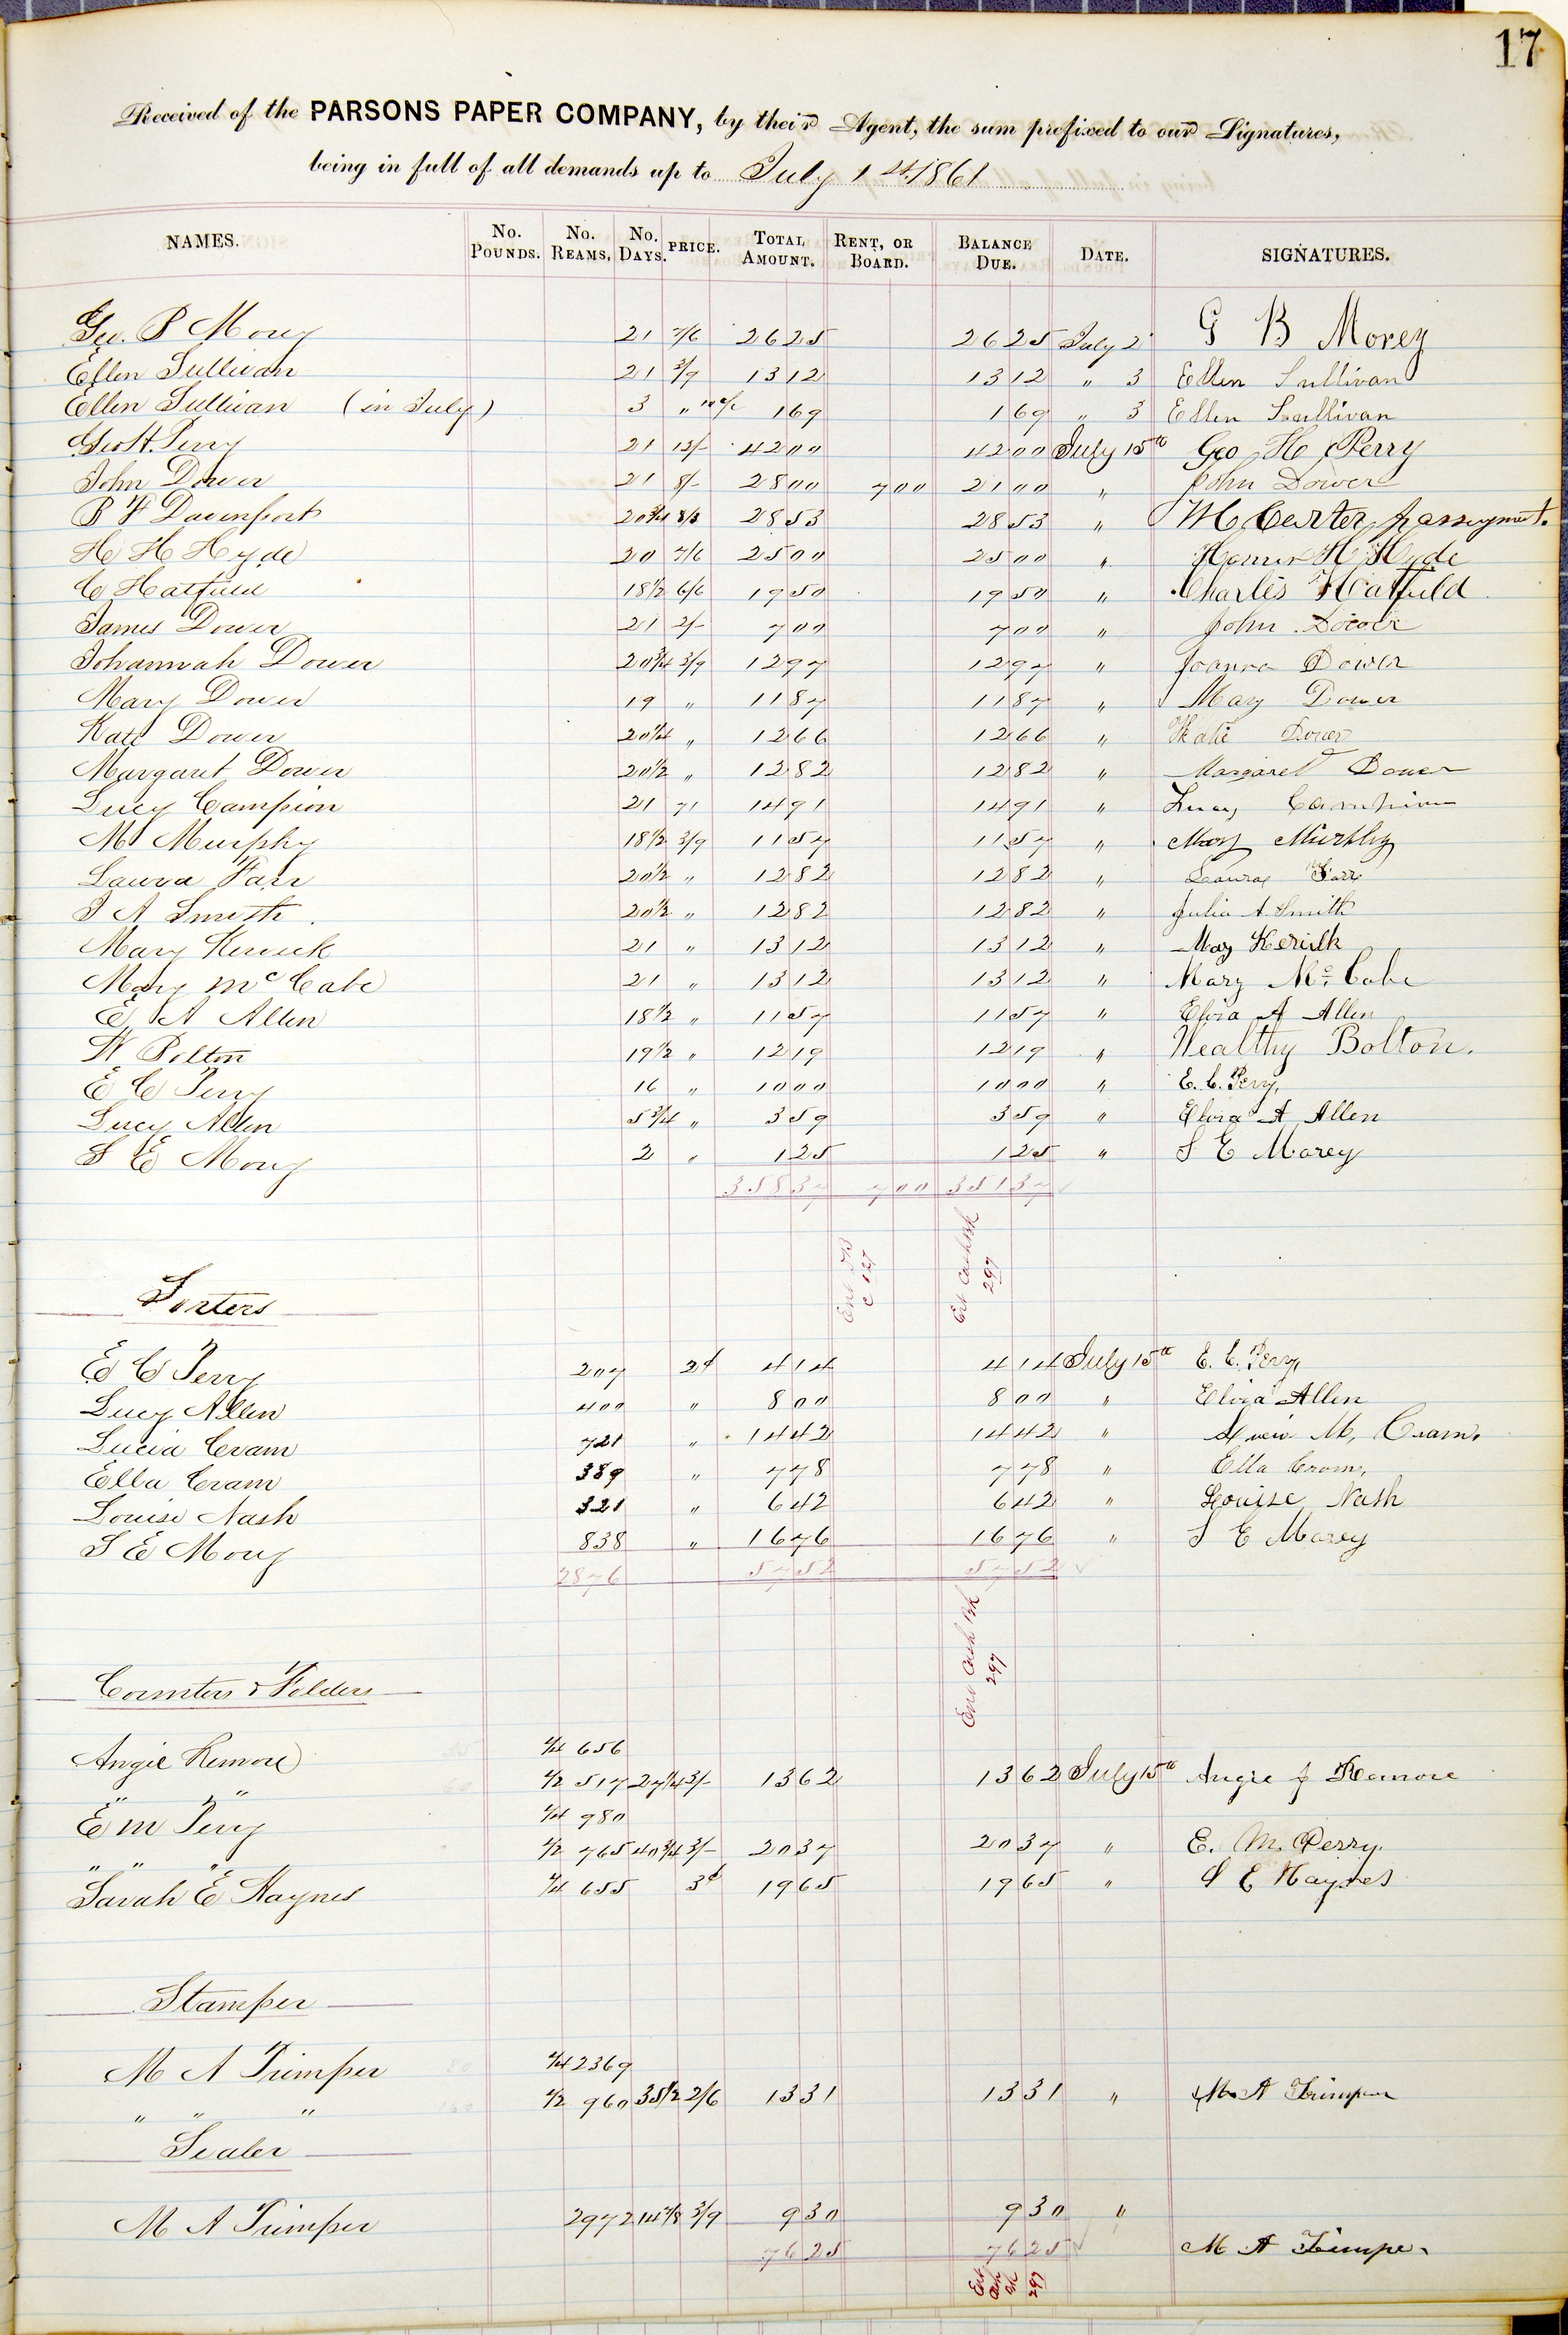 17
Received of the PARSONS PAPER COMPANY, by their Agent, the sum prefixed to our Signatures,
being in full of all demands up to July 1st 1861
NAMES. No. POUNDS. No. REAMS. No. DAYS. PRICE. TOTAL AMOUNT. RENT, OR BOARD. BALANCE DUE. DATE. SIGNATURES.
Geo. B Morey 21 7/6 26 25 26 25 July 2 G B Morey
Ellen Sullivan 21 3/9 13 12 13 12 " 3 Ellen Sullivan
Ellen Sullivan (in July) 3 " 1 69 1 69 " 3 Ellen Sullivan
Geo H. Perry 21 12/- 42 00 42 00 July 15th Geo H Perry
John Dower 21 8/- 28 00 7 00 21 00 " John Dower
B F Davenport 20 3/4 8/3 28 53 28 53 " M Carter
H H Hyde 20 7/6 25 00 25 00 " Homer H Hyde
C Hatfield 18 1/2 6/6 19 50 19 50 " Charles Hatfield
James Dower 21 2/- 7 00 7 00 " John Dower
Johannah Dower 20 3/4 3/9 12 97 12 97 " Joanna Dower
Mary Dower 19 " 11 87 11 87 " Mary Dower
Kate Dower 20 1/4 " 12 66 12 66 " Katie Dower
Margaret Dower 20 1/2 " 12 82 12 82 " Margaret Dower
Lucy Campion 21 71 14 91 14 91 " Lucy Campion
M Murphy 18 1/2 3/9 11 57 11 57 " Mary Murphy
Laura Farr 20 1/2 " 12 82 12 82 " Laura Farr
J A Smith. 20 1/2 " 12 82 12 82 " Julia A. Smith
Mary Kerwick 21 " 13 12 13 12 " May Kerick
Mary McCabe 21 " 13 12 13 12 " Mary Mc Cabe
E A Allen 18 1/2 " 11 57 11 57 " Elvia A Allen
W Bolton 19 1/2 " 12 19 12 19 " Wealthy Bolton.
E C Perry 16 " 10 00 10 00 " E. C. Perry,
Lucy Allen 5 3/4 " 3 59 3 59 " Elvira A Allen
S E Morey 2 " 1 25 1 25 " S E Morey
358 37 7 00 351 37
Ent C 127
Ent Cash Bk 297
Sorters
E C Perry 207 2¢ 4 14 4 14 July 15th E. C. Perry,
Lucy Allen 400 " 8 00 8 00 " Elvira Allen
Lucia Cram 721 " 14 42 14 42 " M. Cram.
Ella Cram 389 " 7 78 7 78 " Ella Cram,
Louise Nash 321 " 6 42 6 42 " Louise Nash
S E Morey 838 " 16 76 16 76 " S E Morey
2876 57 52 57 52
Ent Cash Bk 297
Counters & Folders
Angie Remore 1/4 656
" " 1/2 517 27 1/4 3/- 13 62 13 62 July 15th Angie J Remore
E M Perry 1/4 980
" " " 1/2 765 40 3/4 3/- 20 37 20 37 " E. M. Perry.
Sarah E Haynes 1/4 655 3¢ 19 65 19 65 " S E Haynes
Stamper
M A Trimper 1/4 2369
" " " 1/2 960 35 1/2 2/6 13 31 13 31 " M A Trimper
Sealer
M A Trimper 2972 14 7/8 3/9 9 30 9 30 "
76 25 76 25 M A Trimper
Ent Cash Bk 297